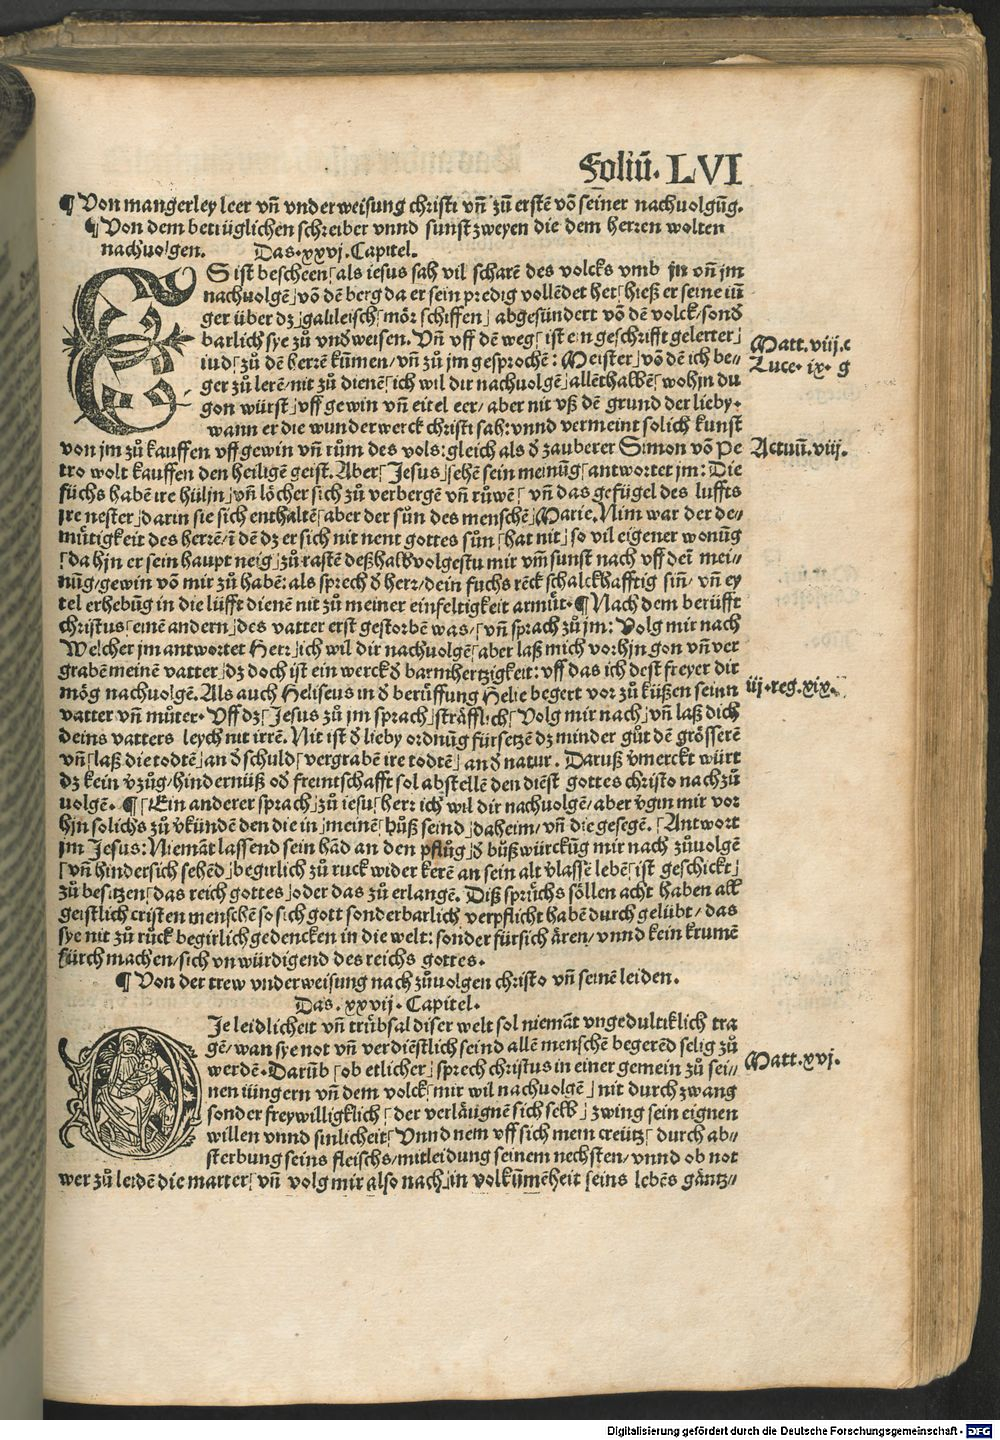 Foliū. LVI
¶ Von mangerley leer vñ vnderweisung christi vñ zů erstē võ seiner nachuolgũg.
¶ Von dem betrüglichen schreiber vnnd sunst zweyen die dem herren wolten
nachuolgen. Das. xxvj. Capitel.
ES ist bescheen/ als iesus sah vil scharē des volcks vmb jn vñ jm
nachuolgē/ võ dē berg da er sein predig vollēdet het/ hieß er seine iũ
ger über dz/ galileisch/ mör schiffen/ abgesündert võ dē volck/ sonđ
barlich sye zů vnđweisen. Vñ vff dē weg/ ist ein geschrifft gelerter/
iud/ zů dē herrē kũmen/ vñ zů jm gesprochē: Meister/ võ dē ich be⸗
ger zů lerē/ nit zů dienē/ ich wil dir nachuolgē/ allēthalbē/ wohjn du
gon würst/ vff gewin vñ eitel eer/ aber nit vß dē grund der lieby.
wann er die wunderwerck christi sah: vnnd vermeint solich kunst
von jm zů kauffen vff gewin vñ rům des vols: gleich als đ zauberer Simon võ Pe
tro wolt kauffen den heiligē geist. Aber/ Jesus/ sehē sein meinũg/ antwortet jm: Die
füchs habē ire hüljn/ vñ löcher sich zů verbergē vñ růwē/ vñ das gefügel des luffts
jre nester/ darin sie sich enthaltē/ aber der sůn des menschē/ Marie. Nim war der de⸗
můtigkeit des herrē/ ī dē dz er sich nit nent gottes sůn/ hat nit/ so vil eigener wonũg
/ da hjn er sein haupt neig/ zů rastē deßhalb volgestu mir vm̃ sunst nach vff dei meī⸗
nũg/ gewin võ mir zů habē: als sprech đ herr/ dein fuchs rēck schalckhafftig siñ/ vñ ey
tel erhebũg in die lüfft dienē nit zů meiner einfeltigkeit armůt. ¶ Nach dem berüfft
christus/ einē andern/ des vatter erst gestorbē was/ vñ sprach zů jm: Volg mir nach
Welcher jm antwortet Herr/ ich wil dir nachuolgē/ aber laß mich vorhjn gon vñ ver
grabē meinē vatter/ dz doch ist ein werck đ barmhertzigkeit: vff das ich dest freyer dir
mög nachuolgē. Als auch Heliseus in đ berůffung Helie begert vor zů küßen seinn
vatter vñ můter. Vff dz/ Jesus zů jm sprach/ sträfflich/ Volg mir nach/ vñ laß dich
deins vatters leych nit irrē. Nit ist đ lieby ordnũg fürsetzē dz minder gůt dē grösserē
vñ/ laß die todtē/ an đ schuld/ vergrabē ire todtē/ an đ natur. Daruß v̓merckt würt
dz kein v̓zůg/ hindernüß ođ freintschafft sol abstellē den diēst gottes christo nachzů
uolgē. ¶ Ein anderer sprach/ zů iesu/ herr ich wil dir nachuolgē/ aber v̓gin mir vor
hjn solichs zů v̓kündē den die in/ meinē/ hůß seind/ daheim/ vñ die gesegē. Antwort
jm Jesus: Niemāt lassend sein hād an den pflůg/ đ bůßwürckũg mir nach zůuolgē
/ vñ hindersich sehēd/ begirlich zů ruck wider kerē an sein alt v̓lassē lebē/ ist geschickt/
zů besitzen/ das reich gottes/ oder das zů erlangē. Diß sprüchs söllen acht haben all
geistlich cristen menschē so sich gott sonderbarlich verpflicht habē durch gelübt/ das
sye nit zů růck begirlich gedencken in die welt: sonder fürsich ären/ vnnd kein krumē
fürch machen/ sich vnwürdigend des reichs gottes.
¶ Von der trew vnderweisung nach zůuolgen christo vñ seinē leiden.
Das. xxvij. Capitel.
DJe leidlicheit vñ trübsal diser welt sol niemāt vngedultiklich tra
gē/ wan sye not vñ verdiēstlich seind allē menschē begerēd selig zů
werdē. Darũb/ ob etlicher/ sprech christus in einer gemein zů sei⸗
nen iüngern vñ dem volck/ mir wil nachuolgē/ nit durch zwang
sonder freywilligklich/ der verläugnē sich selb/ zwing sein eignen
willen vnnd sinlicheit/ Vnnd nem vff sich mein creütz/ durch ab⸗
sterbung seins fleischs/ mitleidung seinem nechsten/ vnnd ob not
wer zů leidē die marter/ vñ volg mir also nach/ in volkũmēheit seins lebēs gäntz⸗
Matt. viij. c
Luce. ix. g
Actuũ. viij.
iij. reg. xix.
Matt. xvj.
Digitalisierung gefördert durch die Deutsche Forschungsgemeinschaft - DFG